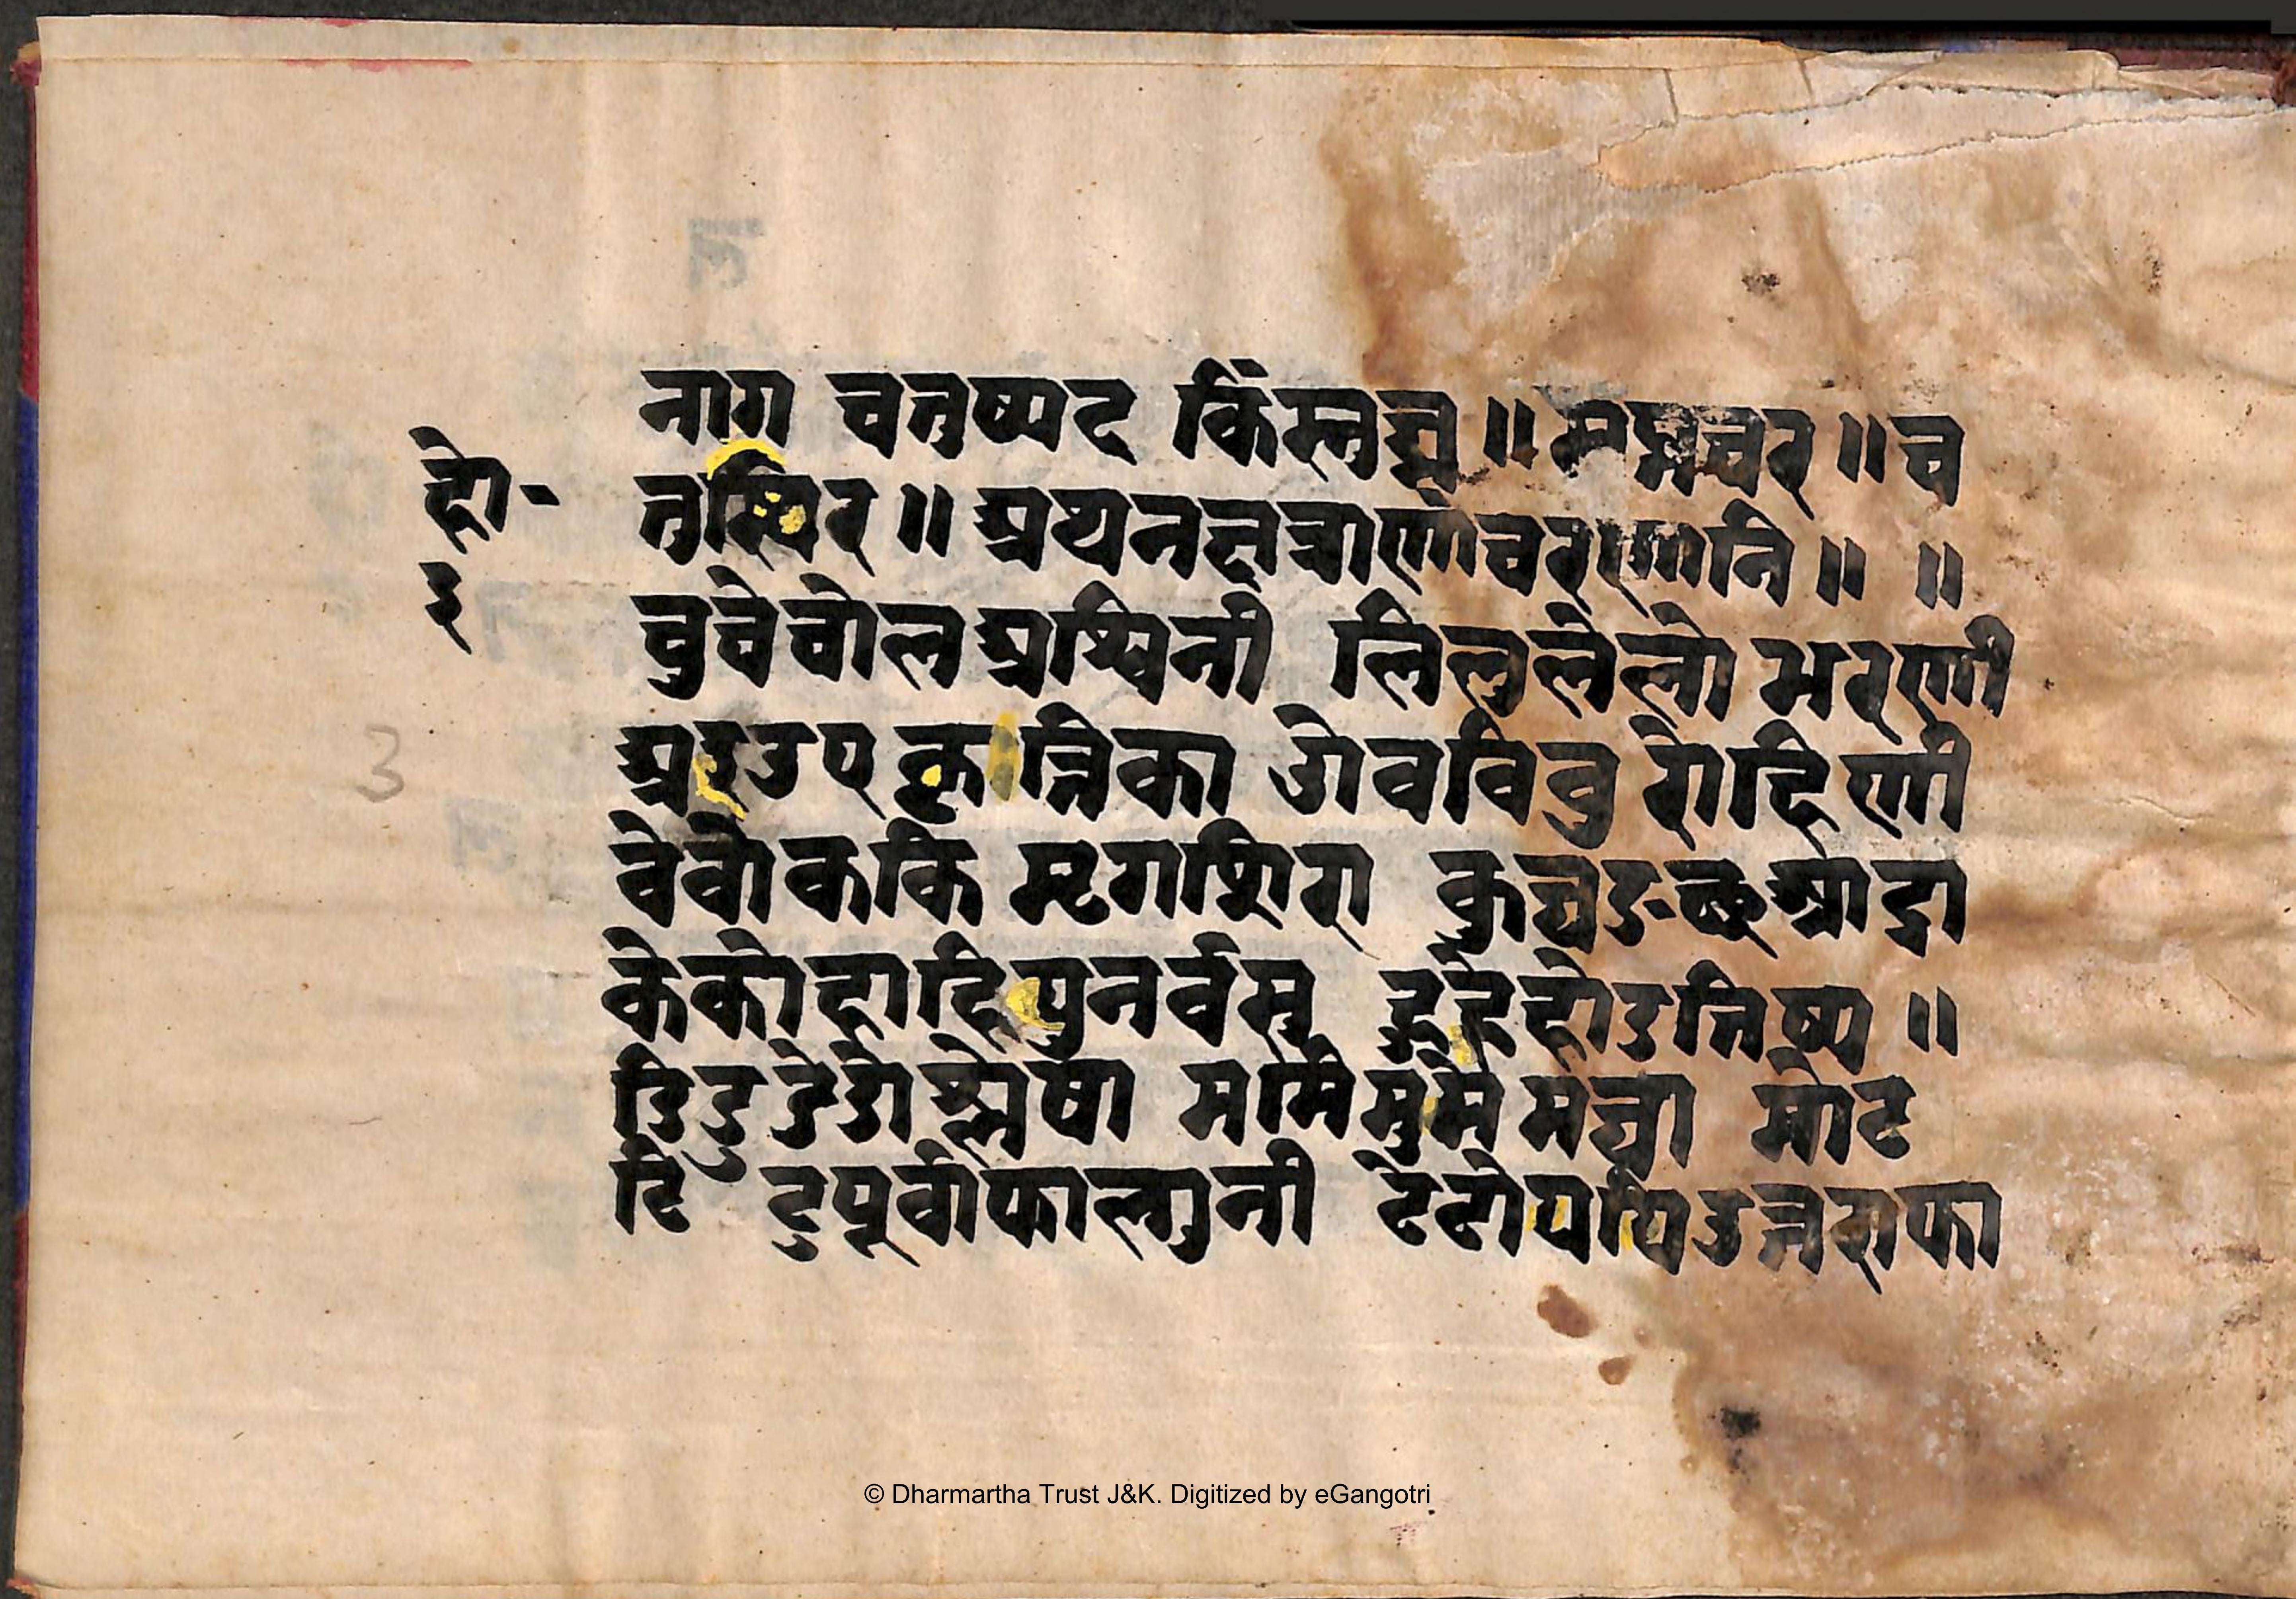 नाग चतुष्पद किंस्तुघ्न ॥ सप्तचर ॥ च
तुस्थिर ॥ अथ नक्षत्राणां चरणानि ॥ ॥
हो-
३
चुचेचोल अश्विनी लिलुलेलो भरणी
अइउए कृत्तिका ओवविवु रोहिणी
वेवोककि मृगशिरा कुघङछ आर्द्रा
केकोहाहि पुनर्वसु हुहेहोड तिष्य ॥
डिडुडेडो श्लेषा ममिमुमे मघा मोट
टि टु पूर्वाफाल्गुनी टेटोपपि उत्तराफा
3
© Dharmartha Trust J&K. Digitized by eGangotri